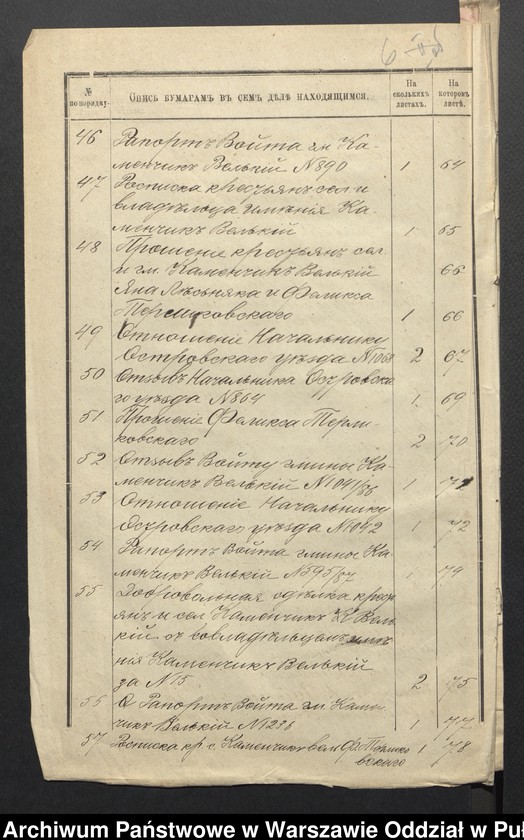 № по порядку.
Опись бумагамъ въ семъ дѣлѣ находящимся.
На сколькихъ листахъ.
На которомъ листѣ.
46 Рапортъ Войта гм. Ка-
менчикъ Велькій № 890 1 64
47 Росписка крестьянъ сел. и
владѣльца имѣнія Ка-
менчикъ Велькій 1 65
48 Прошеніе крестьянъ сел.
и гм. Каменчикъ Велькій 66
Яна Лѣсьняка и Феликса
1 66
49 Отношеніе Начальнику
Островскаго уѣзда № 1068 2 67
50 Отзывъ Начальника Островска
го уѣзда № 864 1 69
51 Прошеніе Феликса
ковскаго 2 70
52 Отзывъ Войту гмины Ка-
менчикъ Велькій № 1041/86 1
53 Отношеніе Начальнику
Островскаго уѣзда № 1042 1 72
54 Рапортъ Войта гмины Ка-
менчикъ Велькій № 595/87 1 74
55 Добровольная сдѣлка крест
янъ сел. Каменчикъ Вель
кій съ совладѣльцами имѣ
нія Каменчикъ Велькій
за № 15 2 75
56 Рапортъ Войта гм. Камен
чикъ Велькій № 1236 1 77
57 Росписка кр. с. Каменчикъ вел. Ф. 1 78
вскаго
Archiwum Państwowe w Warszawie Oddział w Puł